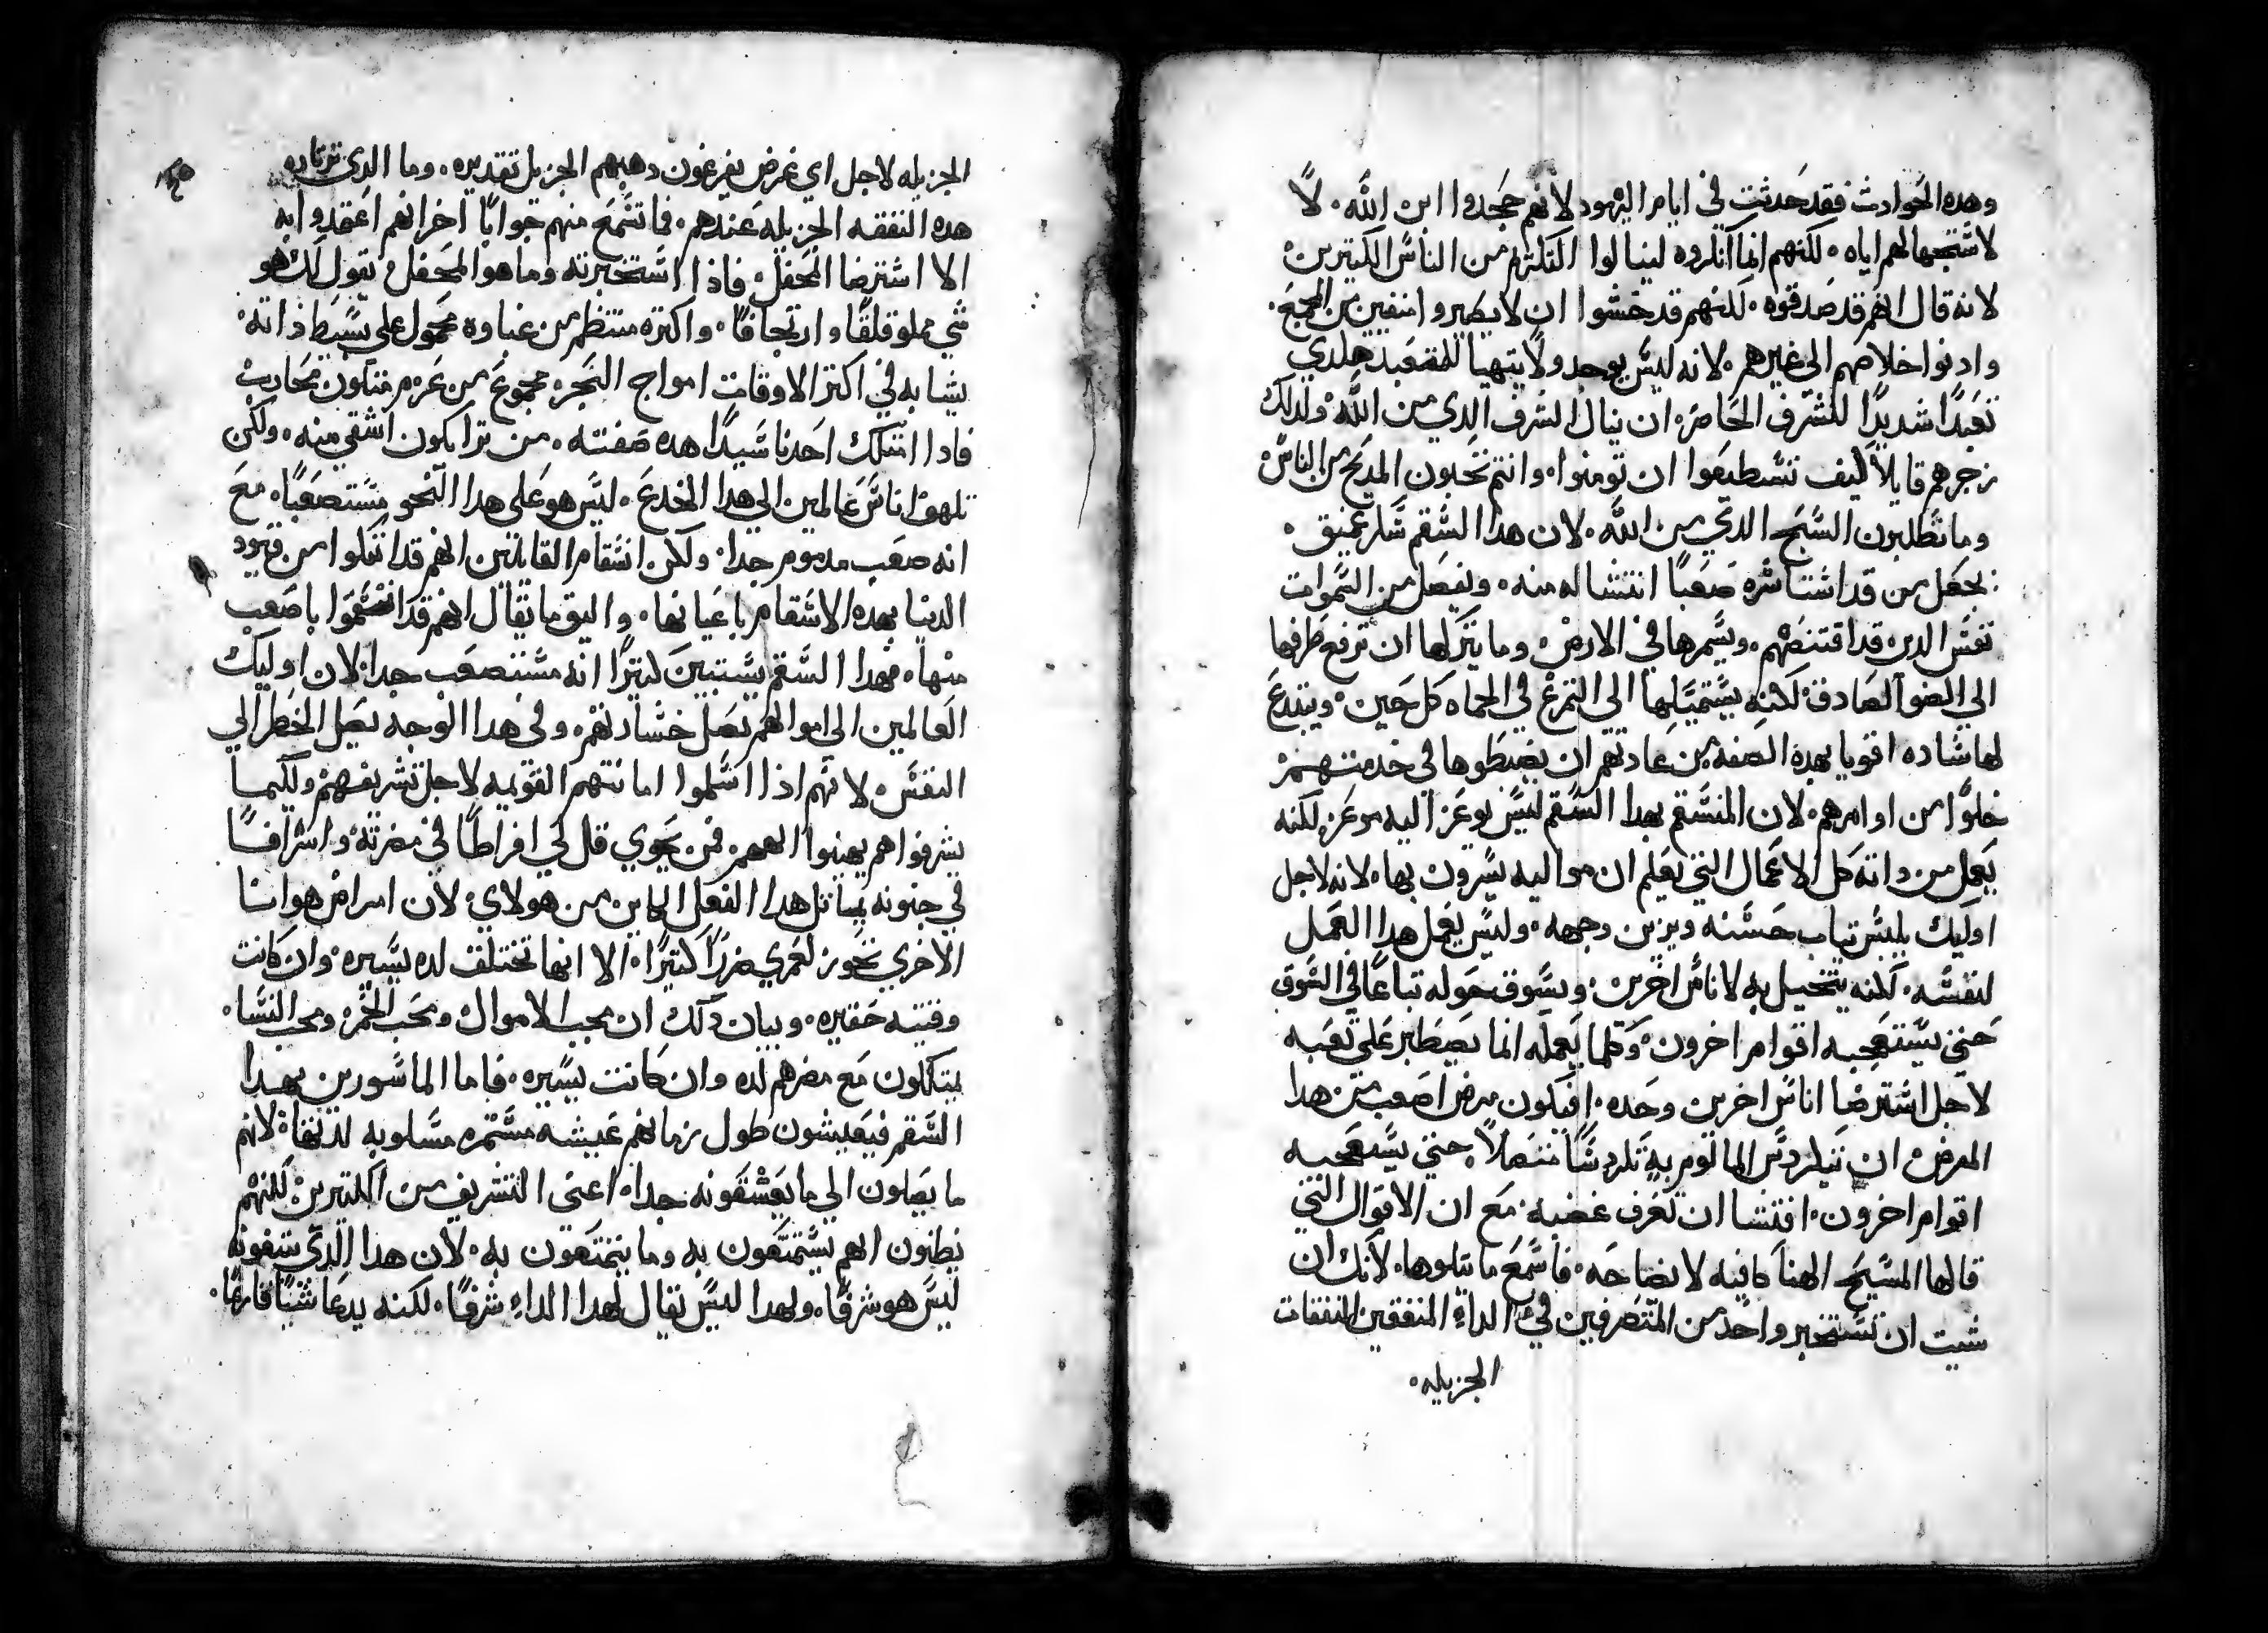 وهذه الحوادث فقد حدثت في ايام اليهود لانهم جحدوا ابن الله. لا
لاستجهالهم اياه. لكنهم انما انكروه لينالوا التكثر من الناس الكتيرين
لانه قال انهم قد صدقوه. لكنهم قد خشوا ان لا يصيروا منفيين من المجمع.
وادنوا خلاصهم الي غيرهم. لانه ليس يوجد ولا يتهيا للمتعبد هكدي
تعبدًا شديدًا للشرف الحاضر، ان ينال الشرف الدي من الله ولدلك
زجرهم قايلًا كيف تستطيعوا ان تومنوا، وانتم تحبون المديح من الناس
وما تطلبون السبح الدي من الله. لان هدا السقم سكر عميق.
يجعل من قد استاسره صعبًا انتشاله منه. ويفصل من السموات
نفس الدين قد اقتنصهم. ويسمرها في الارض وما يتركها ان ترفع طرفها
الي الضوا الصادق لكنه يستميلها الي التمرغ في الحماه كل حين. ويبتدع
لها ساده اقويا بهده الصفه من عادتهم ان يضبطوها في خدمتهم
خلوًا من اوامرهم. لان المنسقم بهدا السقم ليس يوعز اليه موعز. لكنه
يعمل من داته كل الاعمال التي يعلم ان مواليه يسرون بها. لانه لاجل
اوليك يلبس تياب حسنه ويزين وجهه. وليس يعمل هدا العمل
لنفسه. لكنه يتحيل به لاناس اخرين. ويسوق حوله تباعًا في السوق
حتي يستعجبه اقوام اخرون. وكلما يعمله انما يصطبر علي تعبه
لاجل استرضا اناس اخرين وحده. افيكون مرض اصعب من هدا
المرض ان يتكردس المالوم به تكردسًا متصلًا، حتي يستعجبه
اقوام اخرون. افتشا ان تعرف غضبه. مع ان الاقوال التي
قالها المسيح الهنا كافيه لايضاحه. فاسمع ما يتلوها. لانك ان
شيت ان تستخبر واحد من المتصرفين في الداء المنفقين النفقات
الجزيله.
الجزيله لاجل اي غرض يفرغون دهبهم الجزيل تقديره. وما الدي ترتاده
هده النفقه الجزيله عندهم. فما تسمع منهم جوابًا اخر انهم اعتمدوا به
الا استرضا المحفل. فاذا استخبرته وما هو المحفل يقول لك هو
شي مملو قلقًا وارتجافًا. واكتره منتظم من غباوه محمول علي بسيط ذاته.
يشابه في اكتر الاوقات امواج البحر مجموع من عزم متكون محارب
فادا امتلك احدنا سيدًا هده صفته. من ترا يكون اشقي منه. ولكن
تلهف اناس عالمين الي هدا المخدع. ليس هو علي هدا النحو مستصعبًا. مع
انه صعب مدموم جدا. ولكن انسقام القايلين انهم قد انفكوا من قيود
الدنيا بهده الاسقام باعيانها. واليق ما يقال انهم قد انسقموا باصعب
منها. فهدا السقم يستبين كتيرًا انه مستصعب جدا. لان اوليك
العالمين الي اموالهم تصل خسارتهم. وفي هدا الوجه يصل الخطر الي
النفس. لانهم اذا اسلموا امانتهم القويمه لاجل تشريفهم ولكيما
يشرفوا هم يهينوا الههم. فمن يحوي قل لي افراطًا في مضرته واسرافًا
في جنونه يماثل هدا الفعل الكاين من هولاي. لان امراض هوانا
الاخري تحوز لعمري ضررًا كتيرًا. الا انها تختلف لده يسيره. وان كانت
وقتيه حقيره. وبيان دلك ان محب الاموال ومحب الخمر ومحب النسا.
يمتلكون مع مضرهم لده وان كانت يسيره. فاما الماسورين بهدا
السقم فيعيشون طول زمانهم عيشه مستمره مسلوبه لدتها. لانهم
ما يصلون الي ما يعشقونه جدا. اعني التشريف من الكتيرين لكنهم
يظنون انهم يستمتعون به وما يتمتعون به. لان هدا الدي يتبعونه
ليس هو شرفًا. ولهدا ليس يقال لهدا الداء شرفًا. لكنه يدعا شيًا فارغًا.